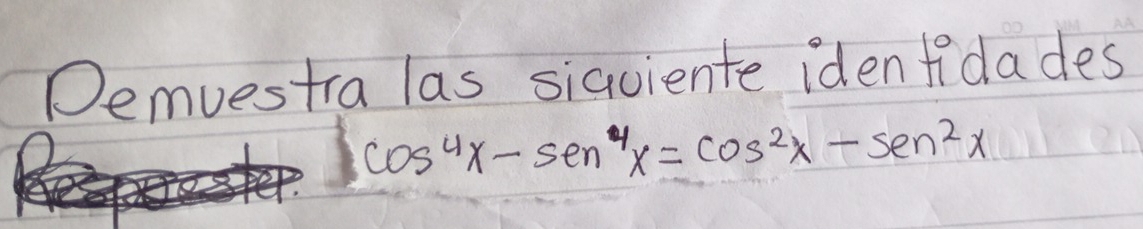 Demuestra las siguiente identidades
cos⁴x - sen⁴x = cos²x - sen²x